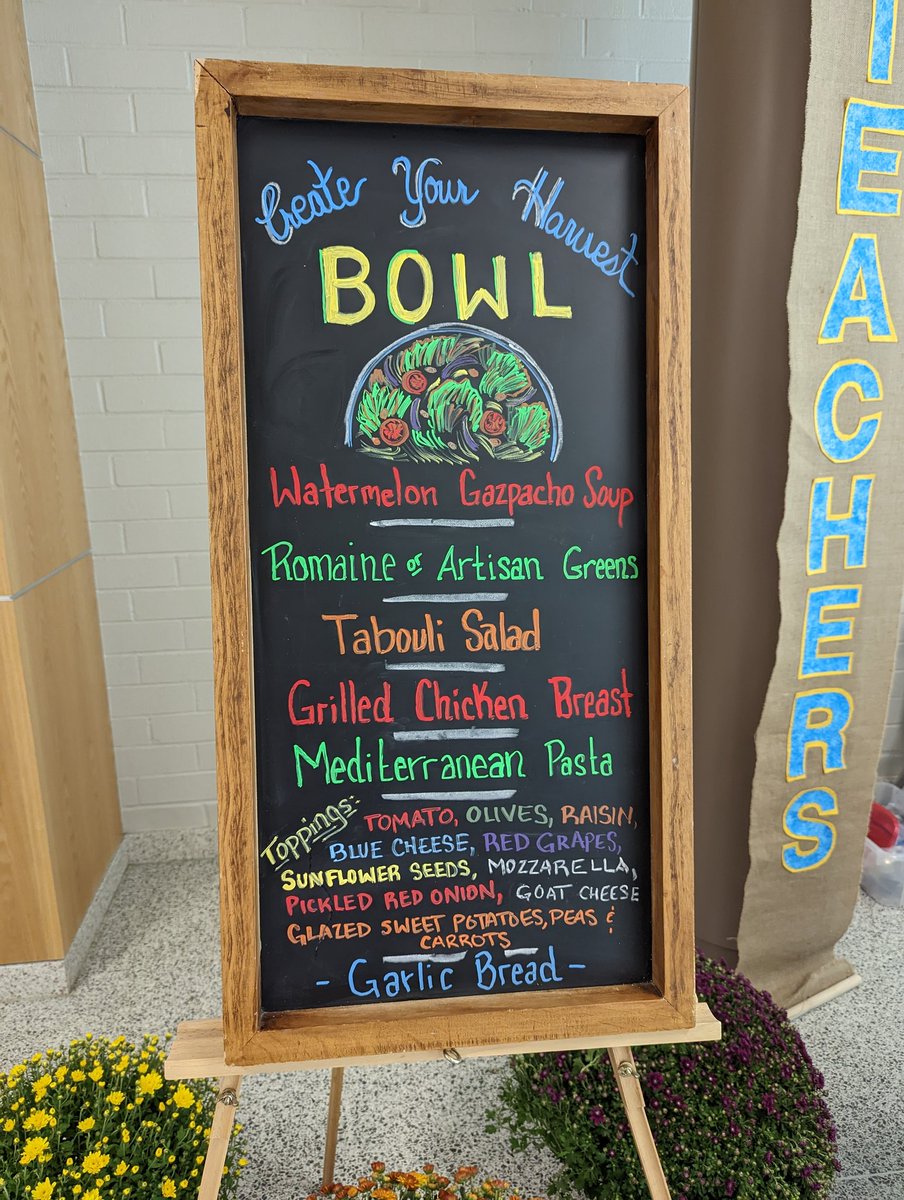 Create Your Harvest
BOWL
Watermelon Gazpacho Soup
Romaine or Artisan Greens
Tabouli Salad
Grilled Chicken Breast
Mediterranean Pasta
Toppings: TOMATO, OLIVES, RAISIN,
BLUE CHEESE, RED GRAPES,
SUNFLOWER SEEDS, MOZZARELLA,
PICKLED RED ONION, GOAT CHEESE
GLAZED SWEET POTATOES, PEAS &
CARROTS
- Garlic Bread -
TEACHERS